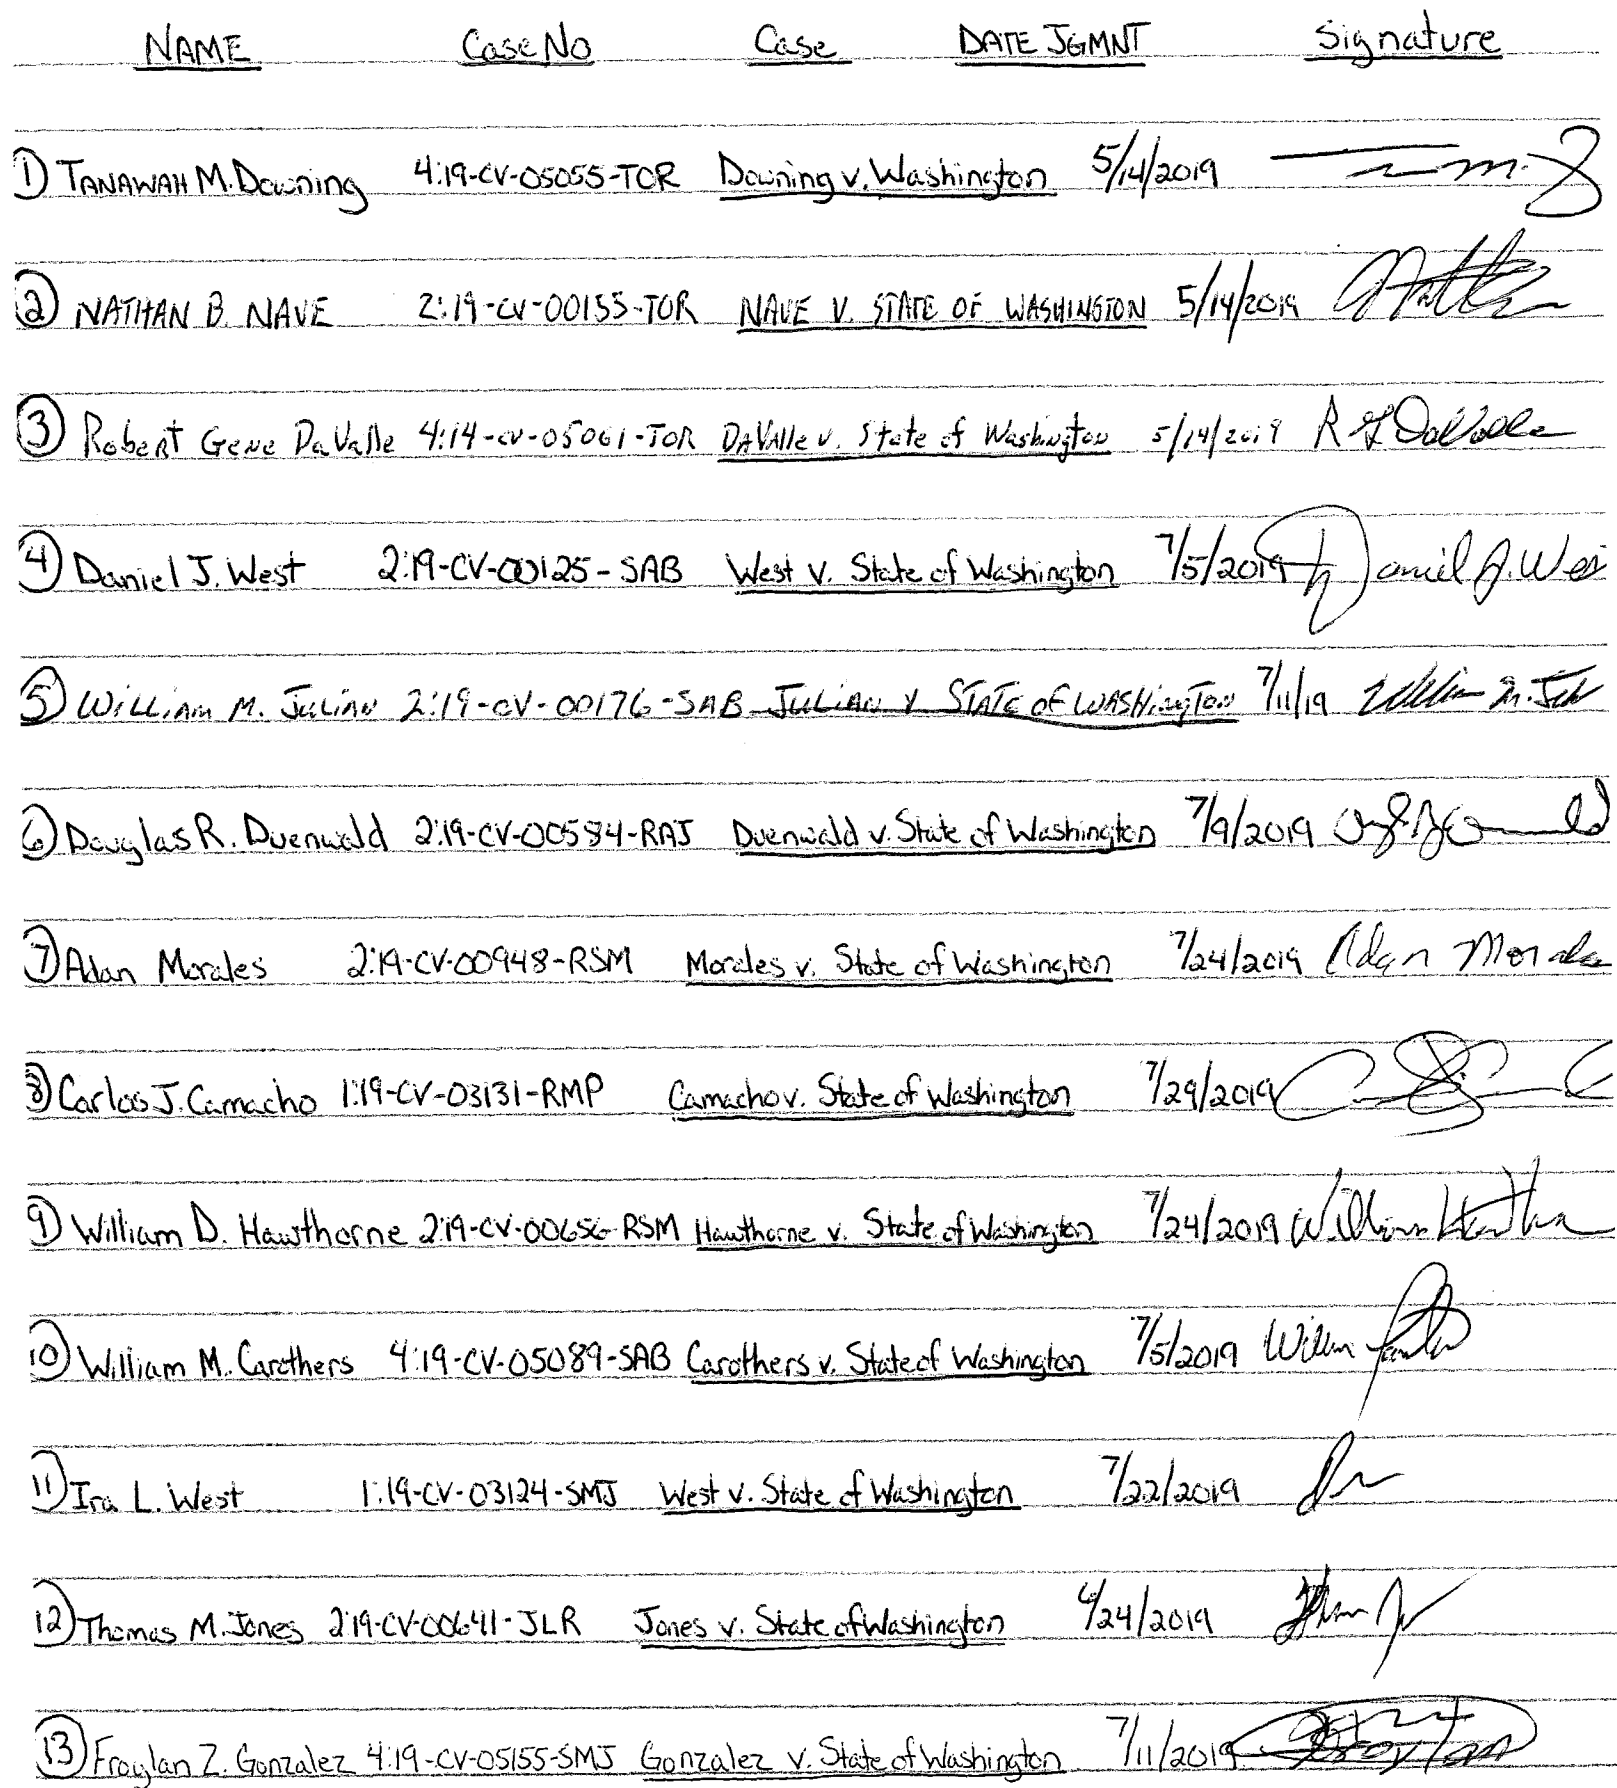 NAME Case No Case DATE JGMNT Signature
1) TANAWAH M. Downing 4:19-CV-05055-TOR Downing v. Washington 5/14/2019
2) NATHAN B. NAVE 2:19-CV-00155-TOR NAVE V. STATE OF WASHINGTON 5/14/2019
3) Robert Gene DaValle 4:14-cv-05061-TOR DaValle v. State of Washington 5/14/2019 R G DaValle
4) Daniel J. West 2:19-CV-00125-SAB West v. State of Washington 7/5/2019 Daniel J. Wes
5) William M. Julian 2:19-CV-00176-SAB Julian v State of Washington 7/11/19 William M. Jul
6) Douglas R. Duenwald 2:19-CV-00584-RAJ Duenwald v. State of Washington 7/9/2019
7) Adan Morales 2:19-CV-00948-RSM Morales v. State of Washington 7/24/2019 Adan Morales
8) Carlos J. Camacho 1:19-CV-03131-RMP Camacho v. State of Washington 7/29/2019
9) William D. Hawthorne 2:19-CV-00656-RSM Hawthorne v. State of Washington 7/24/2019 William
10) William M. Carothers 4:19-CV-05089-SAB Carothers v. State of Washington 7/5/2019
11) Ira L. West 1:19-CV-03124-SMJ West v. State of Washington 7/22/2019
12) Thomas M. Jones 2:19-CV-00641-JLR Jones v. State of Washington 6/24/2019
13) Fraylan Z. Gonzalez 4:19-CV-05155-SMJ Gonzalez v. State of Washington 7/11/2019